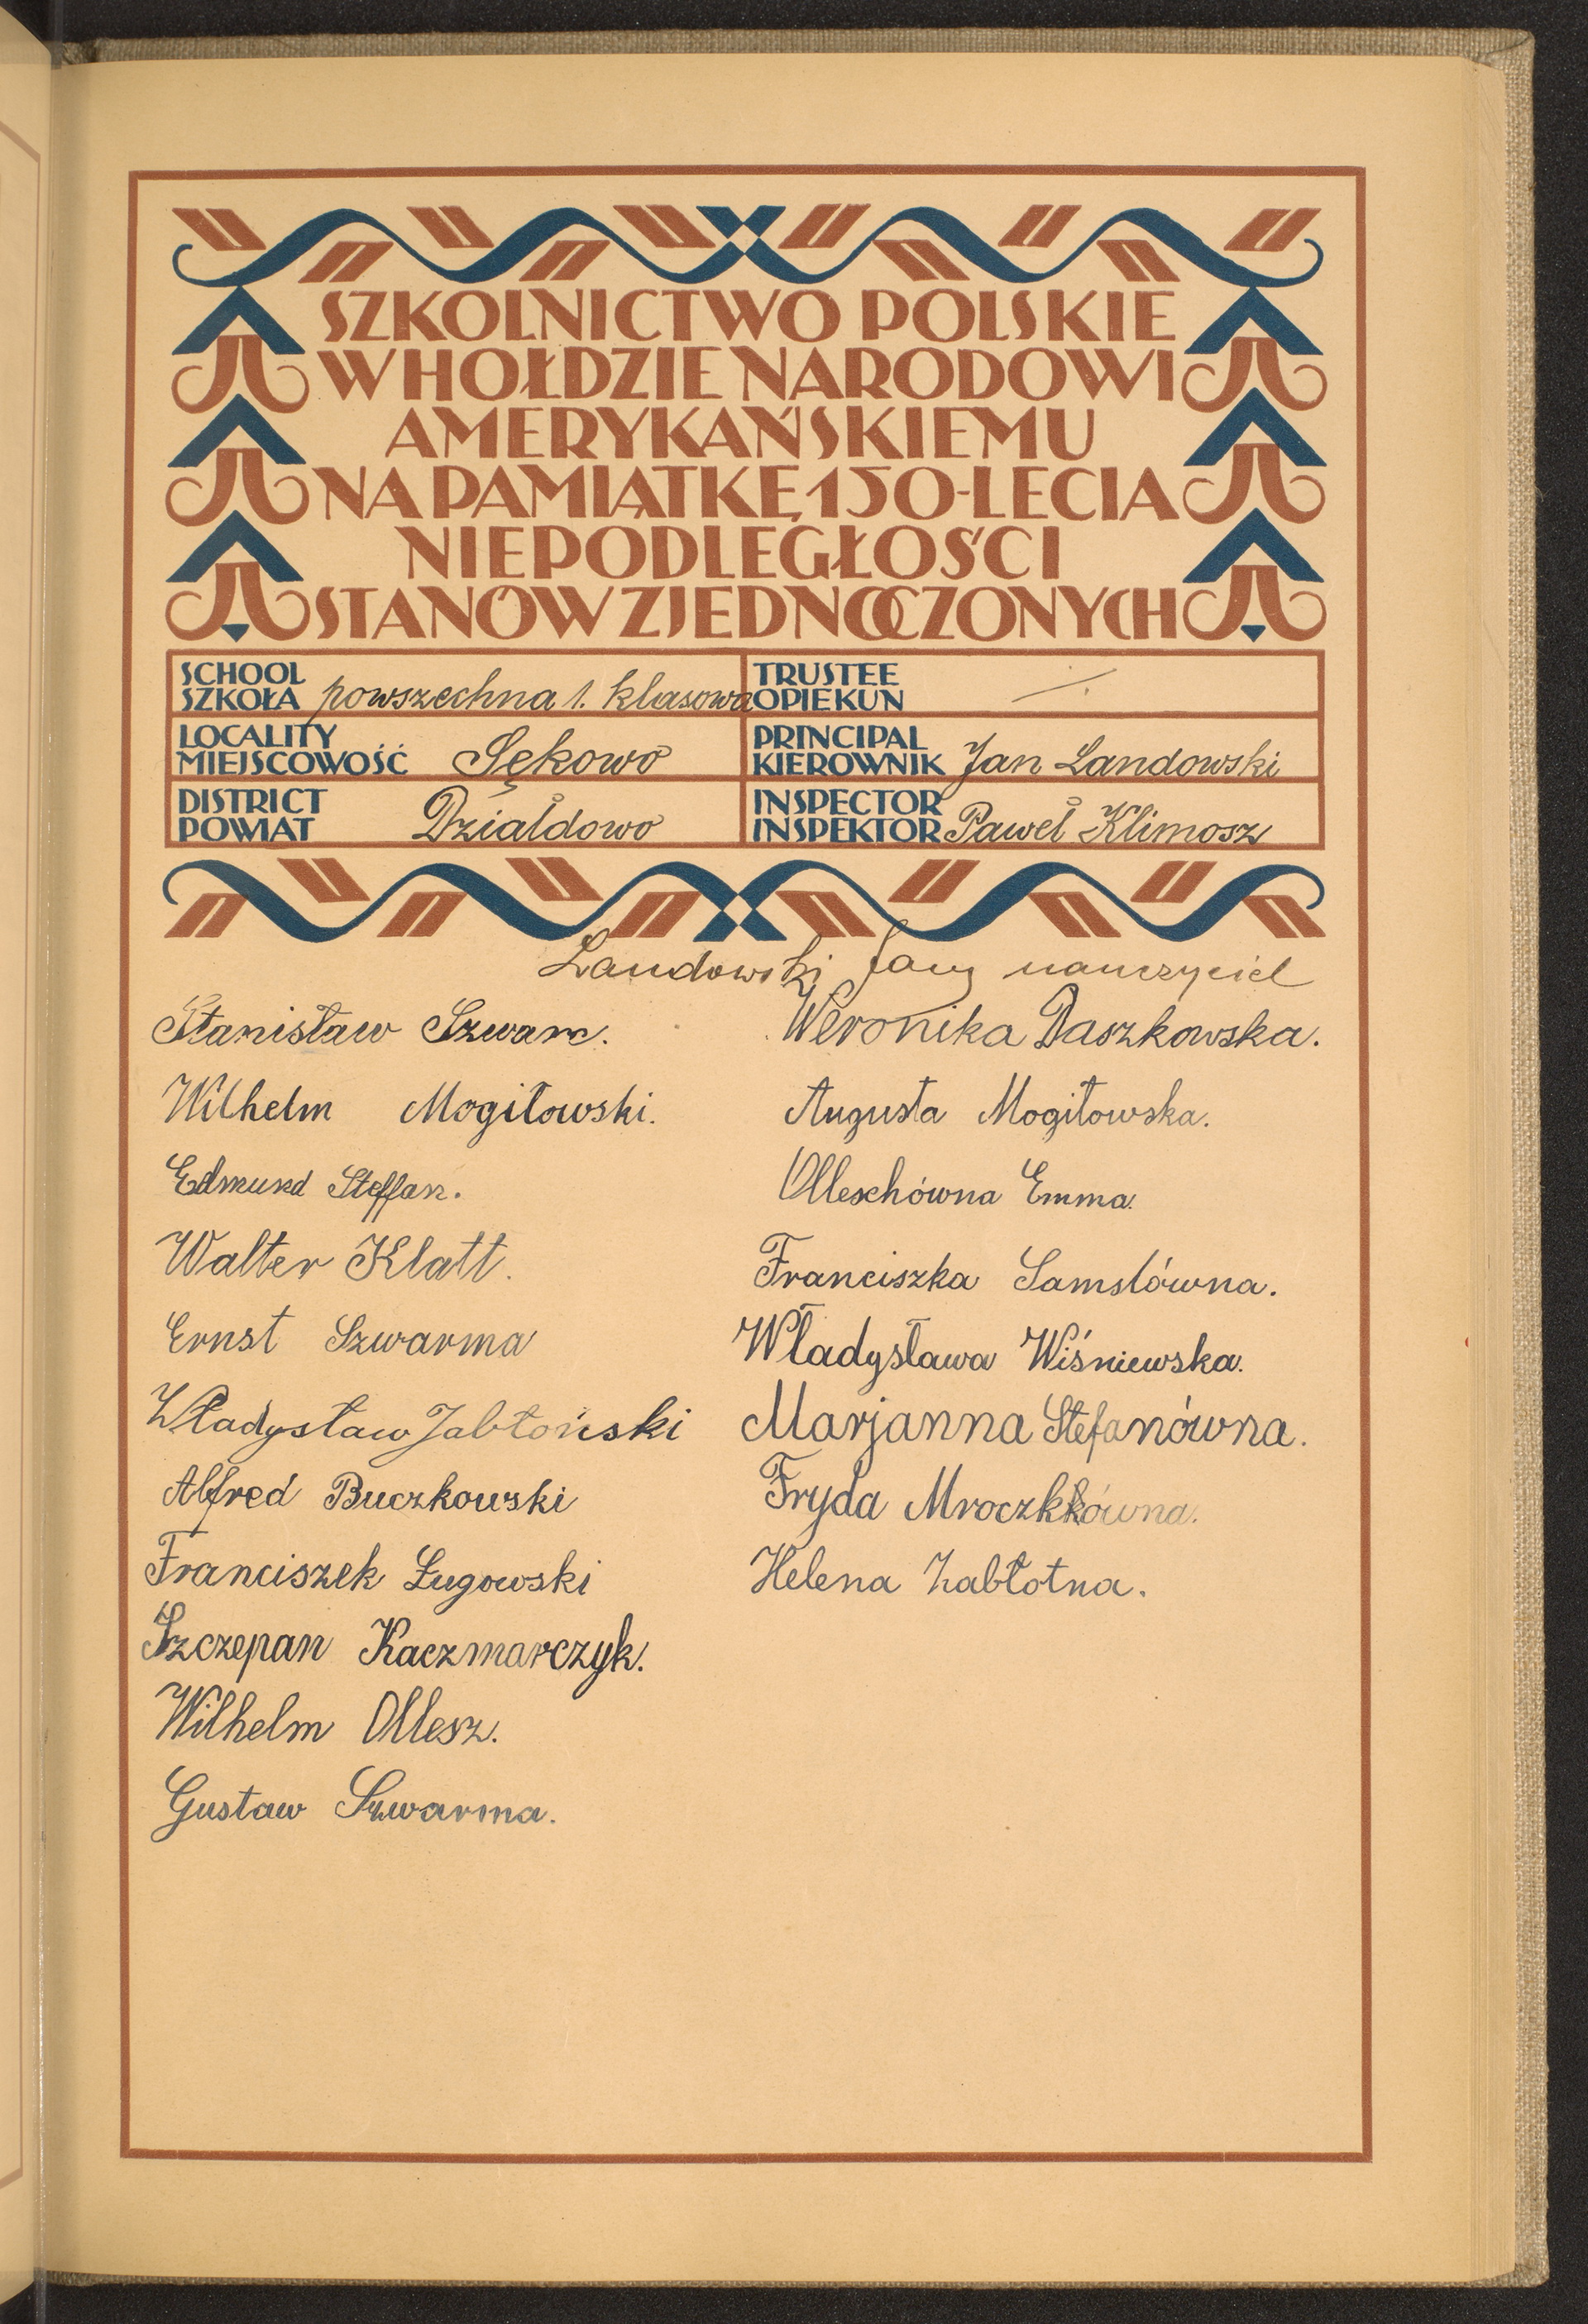 SZKOLNICTWO POLSKIE
W HOŁDZIE NARODOWI
AMERYKAŃSKIEMU
NA PAMIĄTKĘ 150-LECIA
NIEPODLEGŁOŚCI
STANÓW ZJEDNOCZONYCH
SCHOOL
SZKOŁA powszechna 1. klasowa
TRUSTEE
OPIEKUN
LOCALITY
MIEJSCOWOŚĆ Sękowo
PRINCIPAL
KIEROWNIK Jan Landowski
DISTRICT
POWIAT Działdowo
INSPECTOR
INSPEKTOR Paweł Klimosz
Landowski Jan nauczyciel
Stanisław Szwarc.
Wilhelm Mogiłowski.
Edmund Steffan.
Walter Klatt.
Ernst Szwarma
Władysław Jabłoński
Alfred Buczkowski
Franciszek Ługowski
Szczepan Kaczmarczyk.
Wilhelm Ollesz.
Gustaw Szwarma.
Weronika Daszkowska.
Augusta Mogiłowska.
Olleschówna Emma.
Franciszka Samslówna.
Władysława Wiśniewska.
Marjanna Stefanówna.
Fryda Mroczkkówna.
Helena Zabłotna.